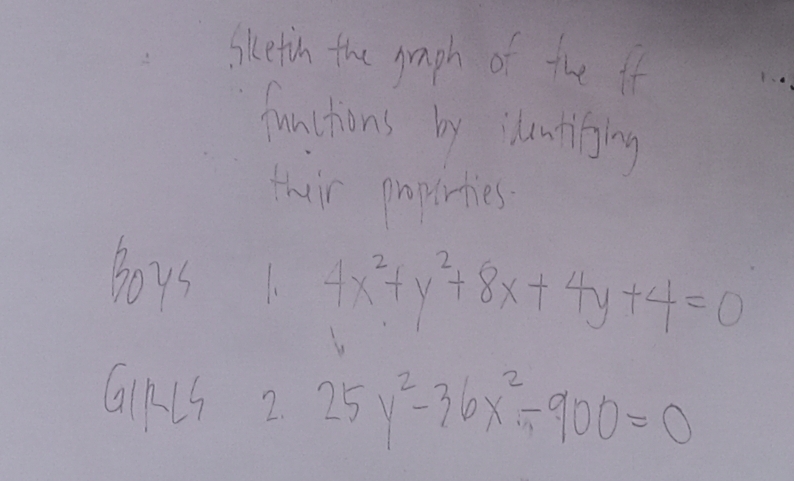 Sketch the graph of the ff
functions by identifying
their properties.
BOYS 1. 4x²+y²+8x+4y+4=0
GIRLS 2. 25y²-36x²-900=0